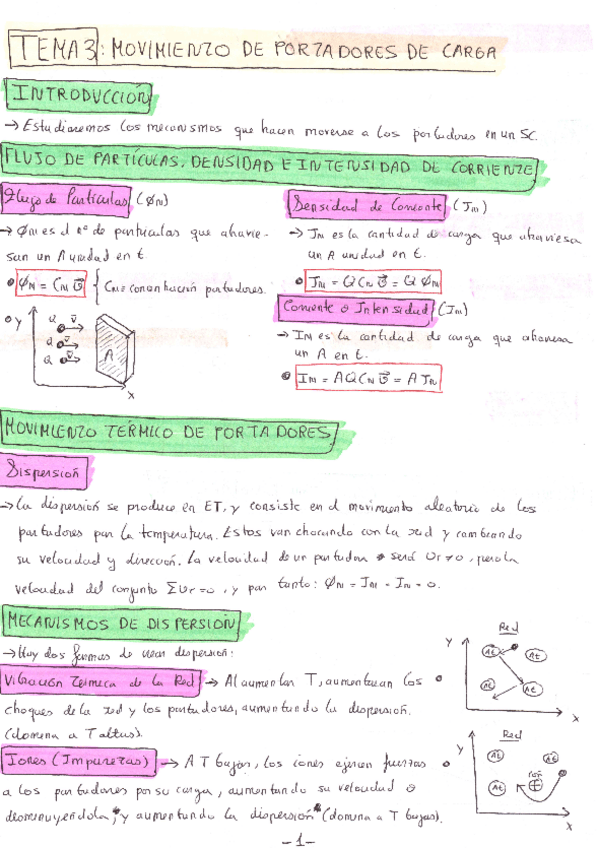 TEMA 3: MOVIMIENTO DE PORTADORES DE CARGA
INTRODUCCIÓN
→ Estudiaremos los mecanismos que hacen moverse a los portadores en un SC.
FLUJO DE PARTÍCULAS, DENSIDAD E INTENSIDAD DE CORRIENTE
Flujo de Partículas (ϕN)
→ ϕN es el nº de partículas que atravie-
san un A unidad en t.
ϕN = CN v⃗ { CN concentración portadores.
y
Q v⃗
Q v⃗
Q
A
x
Densidad de Corriente (JN)
→ JN es la cantidad de carga que atraviesa
un A unidad en t.
JN = Q CN v⃗ = Q ϕN
Corriente o Intensidad (IN)
→ IN es la cantidad de carga que atraviesa
un A en t.
IN = A Q CN v⃗ = A JN
MOVIMIENTO TÉRMICO DE PORTADORES
Dispersión
→ La dispersión se produce en ET, y consiste en el movimiento aleatorio de los
portadores por la temperatura. Estos van chocando con la red y cambiando
su velocidad y dirección. La velocidad de un portador será vr ≠ 0, pero la
velocidad del conjunto Σvr = 0, y por tanto: ϕN = JN = IN = 0.
MECANISMOS DE DISPERSIÓN
→ Hay dos formas de crear dispersión:
Vibración Térmica de la Red → Al aumentar T, aumentaran los
choques de la red y los portadores, aumentando la dispersión.
(domina a T altas).
Red
y
At
At
At
At
x
Iones (Impurezas) → A T bajas, los iones ejercen fuerzas
a los portadores por su carga, aumentando su velocidad o
disminuyendola, y aumentando la dispersión (domina a T bajas).
Red
y
At
At
At
Ion
+
x
-1-